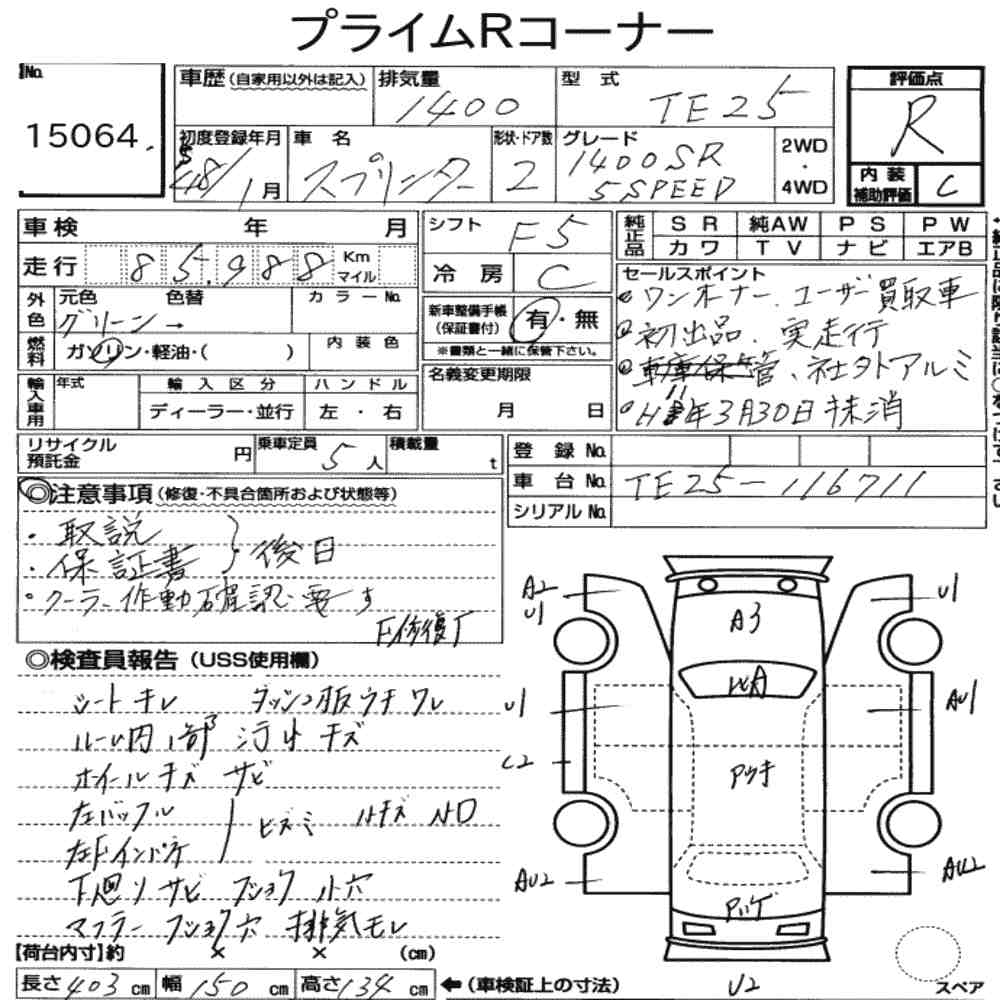 プライムRコーナー
No.
15064.
車歴(自家用以外は記入)
排気量
1400
型 式
TE25
評価点
R
初度登録年月
S
48/1月
車 名
スプリンター
形状・ドア数
2
グレード
1400SR
5SPEED
2WD
・
4WD
内 装
補助評価
C
車検 年 月
シフト
F5
純正品
SR 純AW PS PW
カワ TV ナビ エアB
走行 85.988 Km
マイル
冷 房
C
セールスポイント
ワンオーナー、ユーザー買取車
初出品、実走行
車庫保管、社外アルミ
H11年3月30日抹消
外色
元色 色替 カラーNo.
グリーン→
新車整備手帳
(保証書付)
有・無
※書類と一緒に保管下さい。
燃料
ガソリン・軽油・( )
内装色
輸入車用
年式
輸入区分
ハンドル
ディーラー・並行
左・右
名義変更期限
月 日
リサイクル
預託金
円
乗車定員
5人
積載量
t
登 録 No.
車 台 No.
TE25-116711
シリアルNo.
◎注意事項(修復・不具合箇所および状態等)
・取説
・保証書
後日
・クーラー作動確認要す
F修復了
◎検査員報告(USS使用欄)
シートキレ
ルーム内
汚れ キズ
ホイールキズ サビ
下廻りサビ フショク 小穴
マフラー フショク穴 排気モレ
A2
U1
U1
A3
U1
AU1
C2
AU2
AU2
U2
スペア
【荷台内寸】約 × × (cm)
長さ403cm 幅150cm 高さ134cm
←(車検証上の寸法)